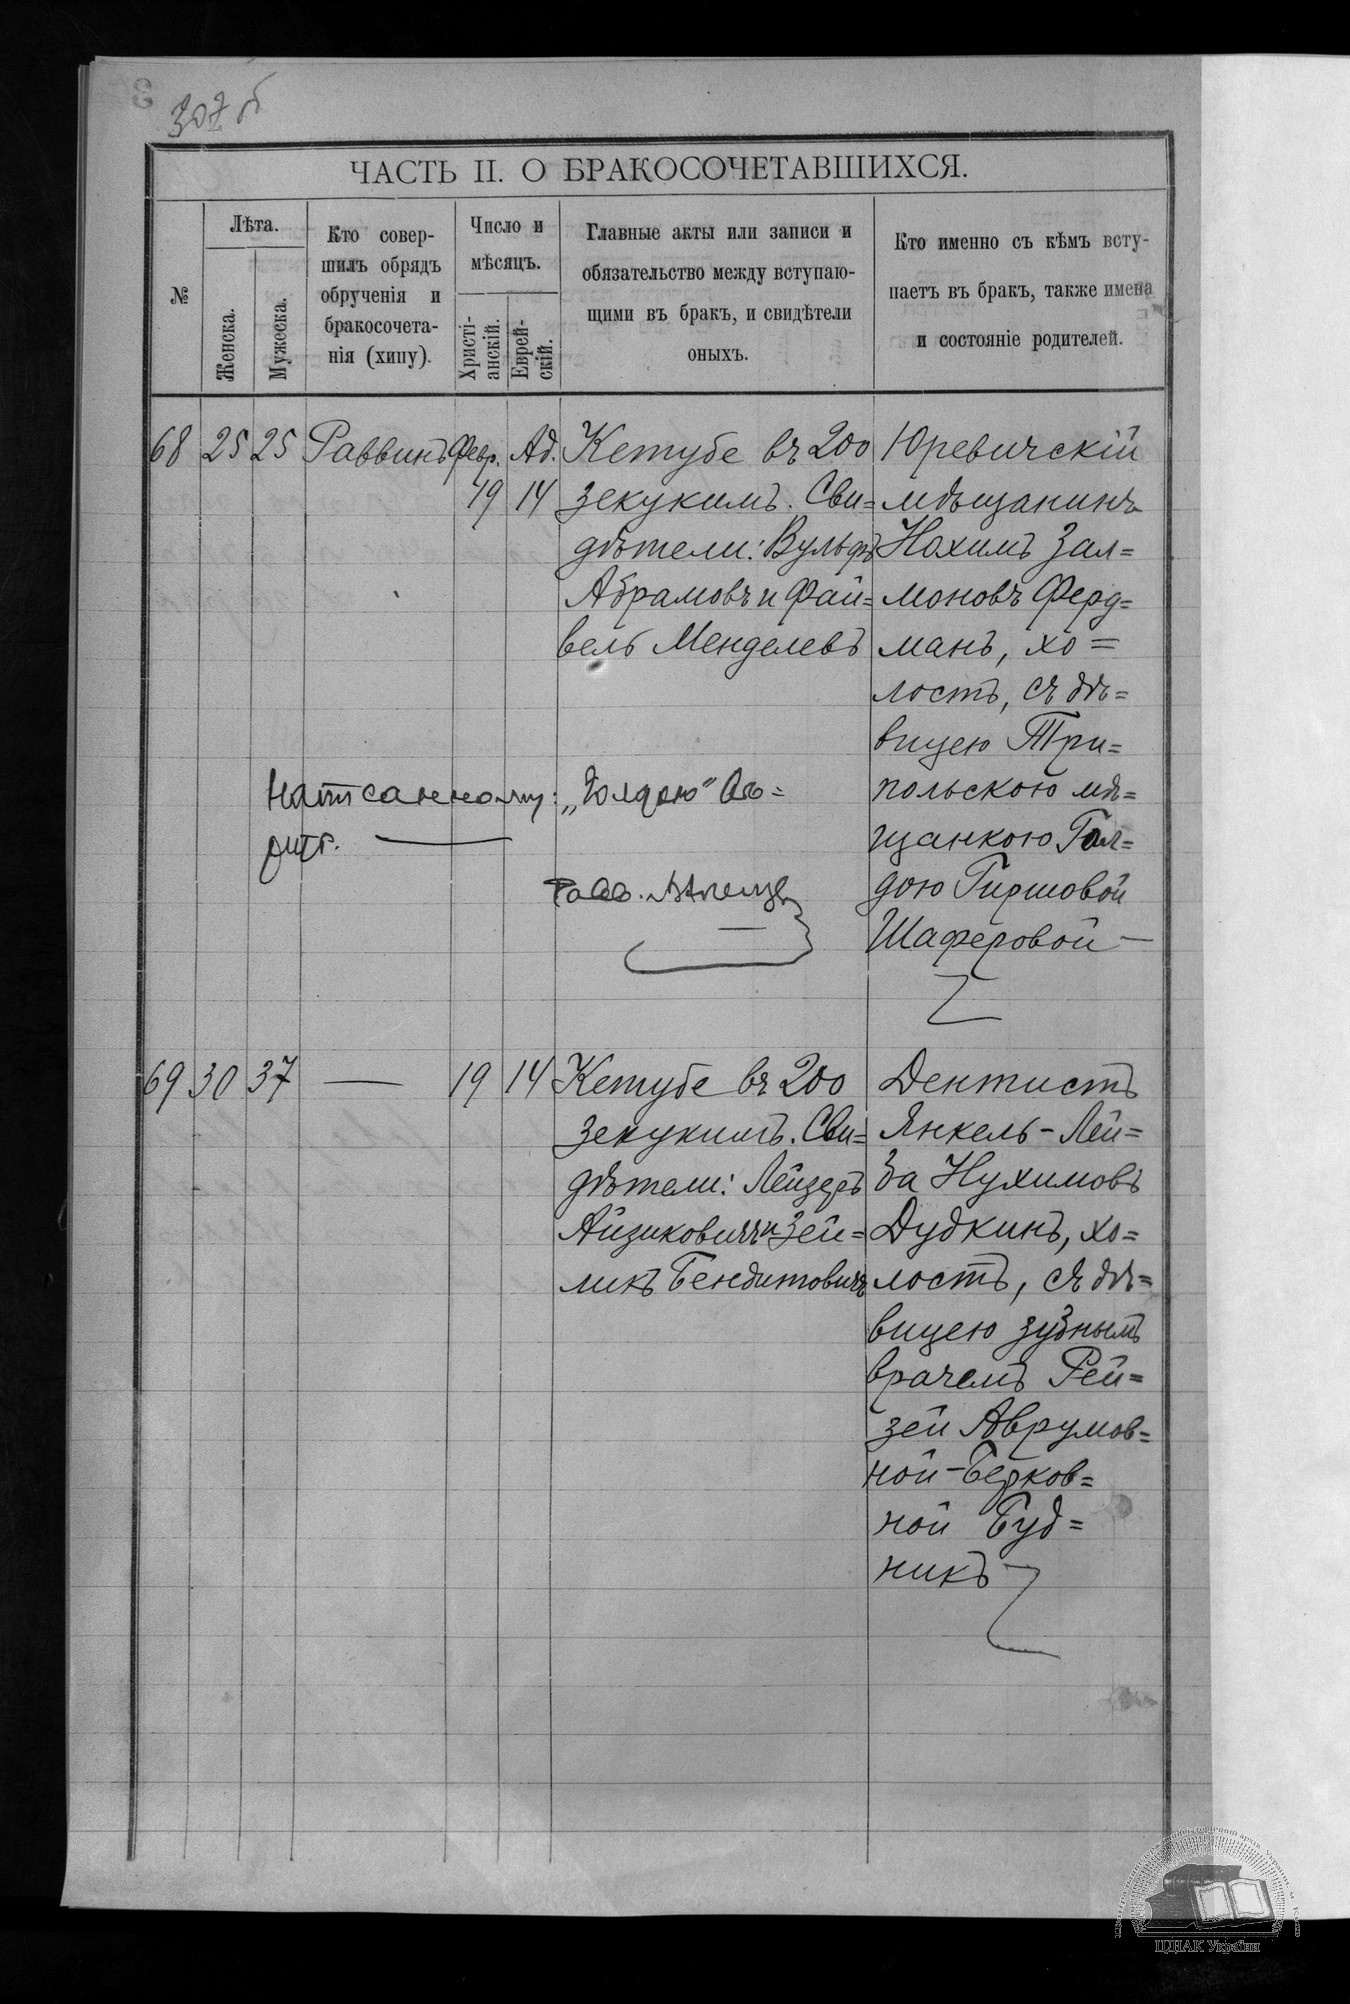 307 об
ЧАСТЬ II. О БРАКОСОЧЕТАВШИХСЯ.
№
Лѣта.
Женска.
Мужеска.
Кто совер-
шилъ обрядъ
обрученія и
бракосочета-
нія (хипу).
Число и
мѣсяцъ.
Христі-
анскій.
Еврей-
скій.
Главные акты или записи и
обязательство между вступаю-
щими въ бракъ, и свидѣтели
оныхъ.
Кто именно съ кѣмъ всту-
паетъ въ бракъ, также имена
и состояніе родителей.
68 25 25 Раввинъ Февр. 19 Ад. 14
Кетубе въ 200
зекукимъ. Сви=
дѣтели: Вульфъ
Абрамовъ и Фай=
вель Менделевъ
Юревичскій
мѣщанинъ
Нохимъ Зал=
моновъ Ферд=
манъ, хо=
лостъ, съ дѣ=
вицею Три=
польскою мѣ=
щанкою Гол=
дою Гиршовой
Шаферовой —
Написанному: „Голдою" вѣ=
рить.
Равв.
69 30 37 — 19 14
Кетубе въ 200
зекукимъ. Сви=
дѣтели: Лейзеръ
Айзиковичъ и Зей=
ликъ Бендитовичъ
Дентистъ
Янкель-Лей=
ба Нухимовъ
Дудкинъ, хо=
лостъ, съ дѣ=
вицею зубнымъ
врачемъ Рей=
зей Аврумов=
ной-Берков=
ной Буд=
никъ
ЦДІАК України